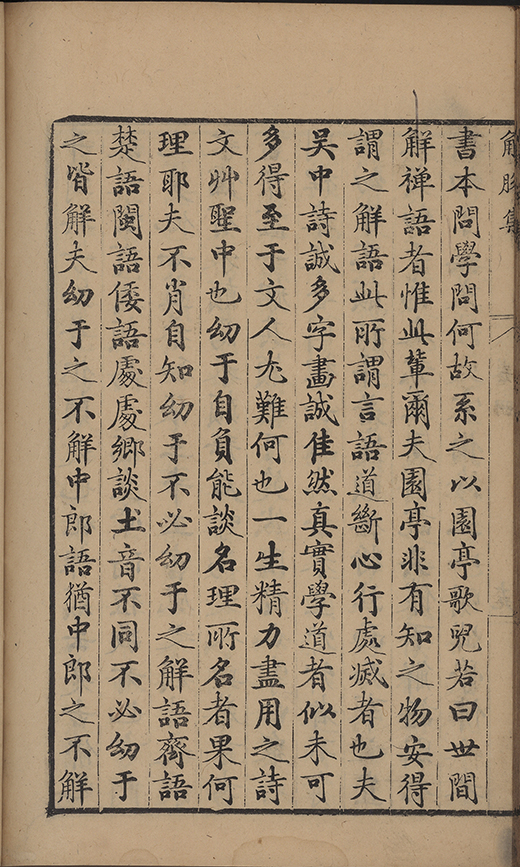 解脫集
書本問學問何故系之以園亭歌兒若曰世間
解禅語者惟此輩爾夫園亭非有知之物安得
謂之解語此所謂言語道斷心行處滅者也夫
吴中詩誠多字畫誠佳然真實學道者似未可
多得至于文人尤難何也一生精力盡用之詩
文艸聖中也幼于自負能談名理所名者果何
理耶夫不肖自知幼于不必幼于之解語齊語
楚語閩語倭語處處鄉談土音不同不必幼于
之皆解夫幼于之不解中郎語猶中郎之不解